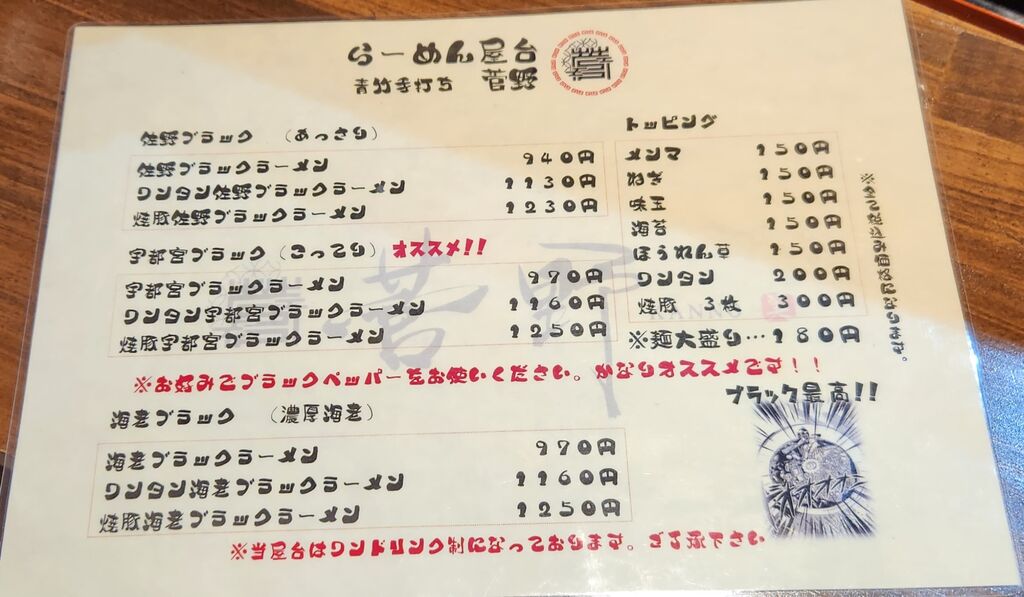 らーめん屋台
青竹手打ち 菅野
佐野ブラック （あっさり）
佐野ブラックラーメン 940円
ワンタン佐野ブラックラーメン 1130円
焼豚佐野ブラックラーメン 1230円
宇都宮ブラック（こってり） オススメ!!
宇都宮ブラックラーメン 970円
ワンタン宇都宮ブラックラーメン 1160円
焼豚宇都宮ブラックラーメン 1250円
トッピング
メンマ 150円
ねぎ 150円
味玉 150円
海苔 150円
ほうれん草 150円
ワンタン 200円
焼豚 3枚 300円
※麺大盛り…180円
※全て税込み価格になります。
※お好みでブラックペッパーをお使いください。かなりオススメです！！
海老ブラック （濃厚海老）
海老ブラックラーメン 970円
ワンタン海老ブラックラーメン 1160円
焼豚海老ブラックラーメン 1250円
ブラック最高!!
※当屋台はワンドリンク制になっております。ご了承下さい
菅野